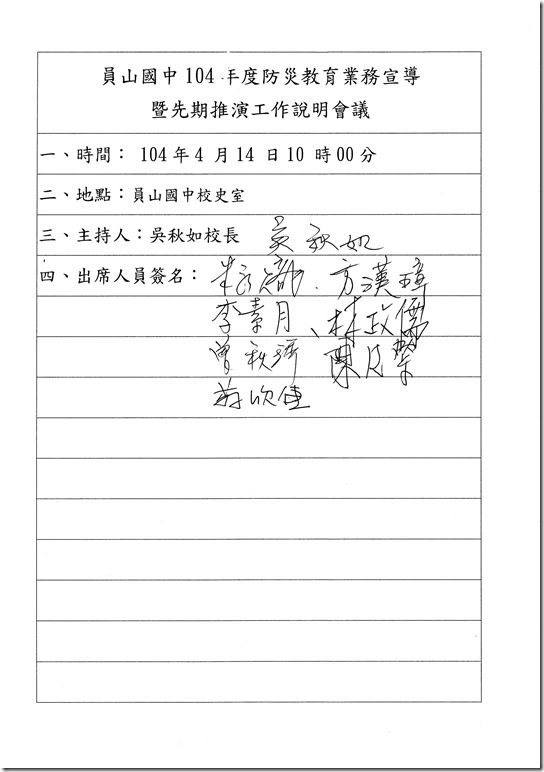 員山國中 104 年度防災教育業務宣導
暨先期推演工作說明會議
一、時間： 104 年 4 月 14 日 10 時 00 分
二、地點：員山國中校史室
三、主持人：吳秋如校長 吳秋如
四、出席人員簽名： 方漢璋
李素月、林政儒
曾秋 陳
欣佳